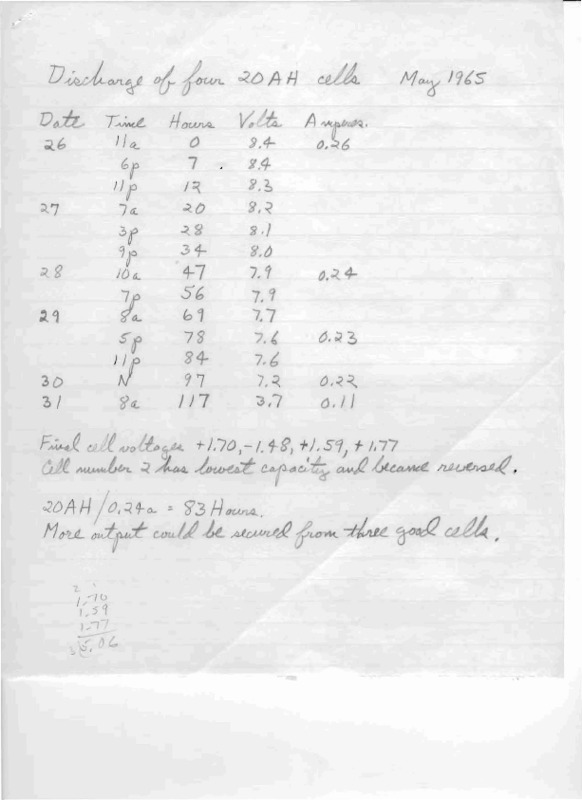 Discharge of four 20AH cells May 1965
Date Time Hours Volts Amperes.
26 11a 0 8.4 0.26
6p 7 8.4
11p 12 8.3
27 7a 20 8.2
3p 28 8.1
9p 34 8.0
28 10a 47 7.9 0.24
7p 56 7.9
29 8a 69 7.7
5p 78 7.6 0.23
11p 84 7.6
30 N 97 7.2 0.22
31 8a 117 3.7 0.11
Final cell voltages +1.70, -1.48, +1.59, +1.77
Cell number 2 has lowest capacity and became reversed.
20AH/0.24a = 83 Hours.
More output could be secured from three good cells.
2 1
1.70
1.59
1.77
5.06